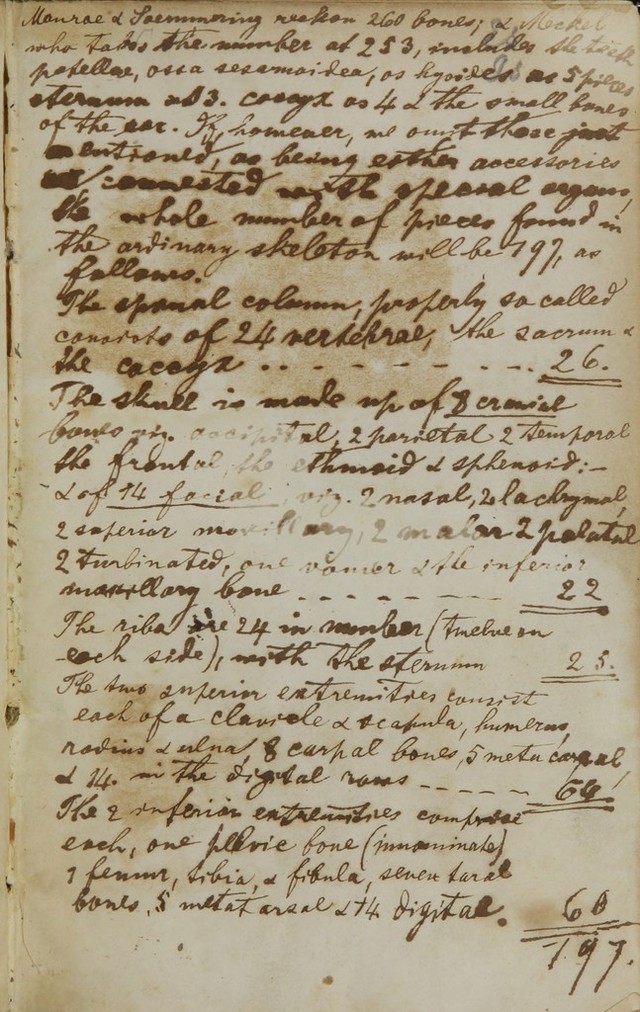 Monroe & Soemmering reckon 260 bones; & Meckel
who takes the number at 253, includes the teeth
patellae, ossa sesamoidea, os hyoides as 5 pieces
sternum as 3. cocyx as 4 & the small bones
of the ear. If, however, we omit those just
mentioned, as being either accessories
or connected with special organs,
the whole number of pieces found in
the ordinary skeleton will be 197, as
follows.
The spinal column, properly so called
consists of 24 vertebrae, the sacrum &
the cocyx .. - - - - - - - ... 26.
The skull is made up of 8 cranial
bones viz. occipital, 2 parietal 2 temporal
the frontal, the ethmoid & sphenoid:-
& of 14 facial, viz. 2 nasal, 2 lachrymal,
2 superior maxillary, 2 malar 2 palatal
2 turbinated, one vomer & the inferior
maxillary bone - - - - - - - 22
The ribs are 24 in number (twelve on
each side), with the sternum 25.
The two superior extremities consist
each of a clavicle & scapula, humerus,
radius & ulna, 8 carpal bones, 5 metacarpal,
& 14. in the digital rows - - - - - 64
The 2 inferior extremities comprise
each, one pelvic bone (innominate)
1 femur, tibia, & fibula, seven tarsal
bones, 5 metatarsal & 14 digital. 60
197.